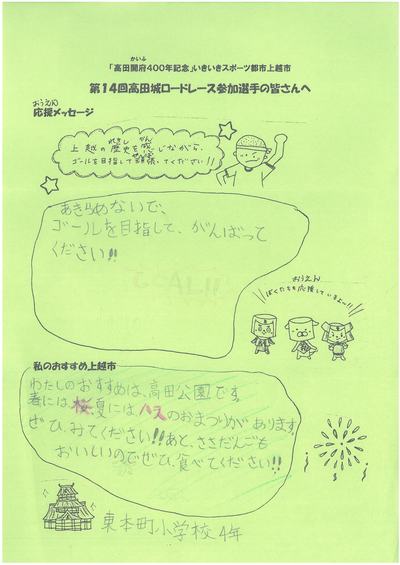 かいふ
「高田開府400年記念」いきいきスポーツ都市上越市
第14回高田城ロードレース参加選手の皆さんへ
おうえん
応援メッセージ
れきし かん
上越の歴史を感じながら、
ゴールを目指して頑張ってください!!
あきらめないで、
ゴールを目指して、がんばって
ください!!
GOAL!!
おうえん
ぼくたちも応援しているよ~!!
私のおすすめ上越市
わたしのおすすめは、高田公園です。
春には桜、夏にはハスのおまつりがあります。
ぜひ、みてください!!あと、ささだんごも
おいしいのでぜひ、食べてください!!
東本町小学校4年